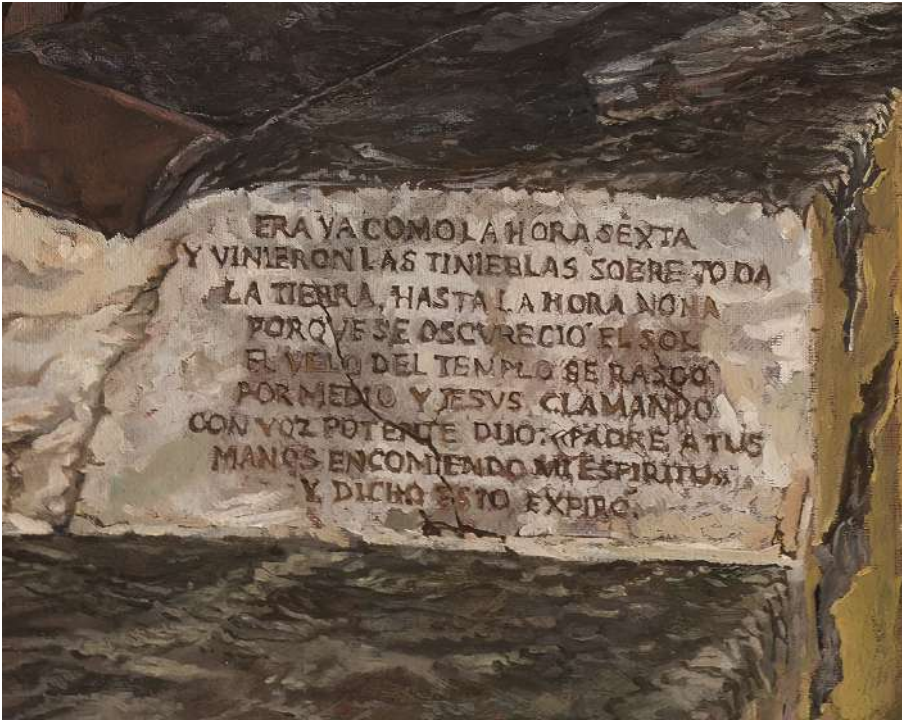 ERA YA COMO LA HORA SÉXTA
Y VINIERON LAS TINIEBLAS SOBRE TODA
LA TIERRA, HASTA LA HORA NONA
PORQVE SE OSCVRECIÓ EL SOL
EL VELO DEL TEMPLO SE RASGÓ
POR MEDIO Y JESVS CLAMANDO
CON VOZ POTENTE DIJO: «PADRE A TUS
MANOS ENCOMIENDO MI ESPIRITU»
Y DICHO ESTO EXPIRÓ.